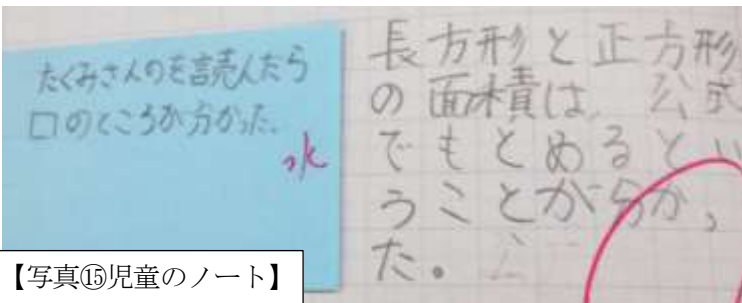 たくみさんのを読んだら
□のところが分かった。
水
長方形と正方形
の面積は、公式
でもとめるとい
うことが分かっ
た。
【写真⑮児童のノート】